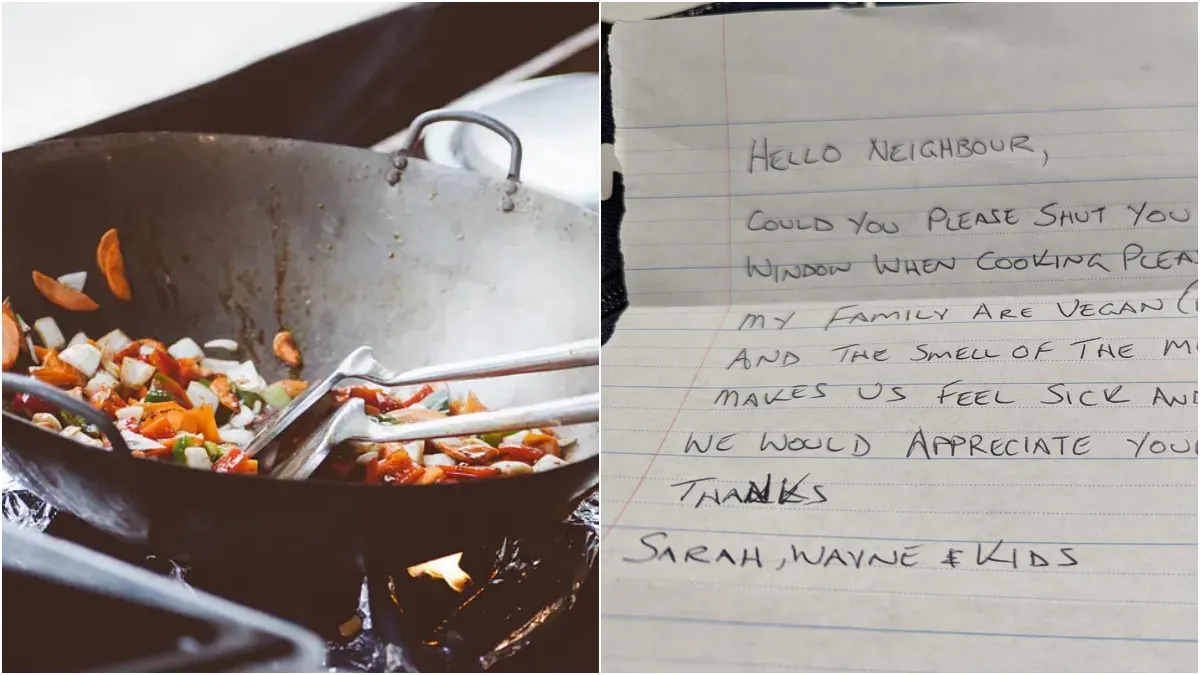 HELLO NEIGHBOUR,
COULD YOU PLEASE SHUT YOU
WINDOW WHEN COOKING PLEA
MY FAMILY ARE VEGAN (
AND THE SMELL OF THE M
MAKES US FEEL SICK AND
WE WOULD APPRECIATE YOU
THANKS
SARAH, WAYNE & KIDS